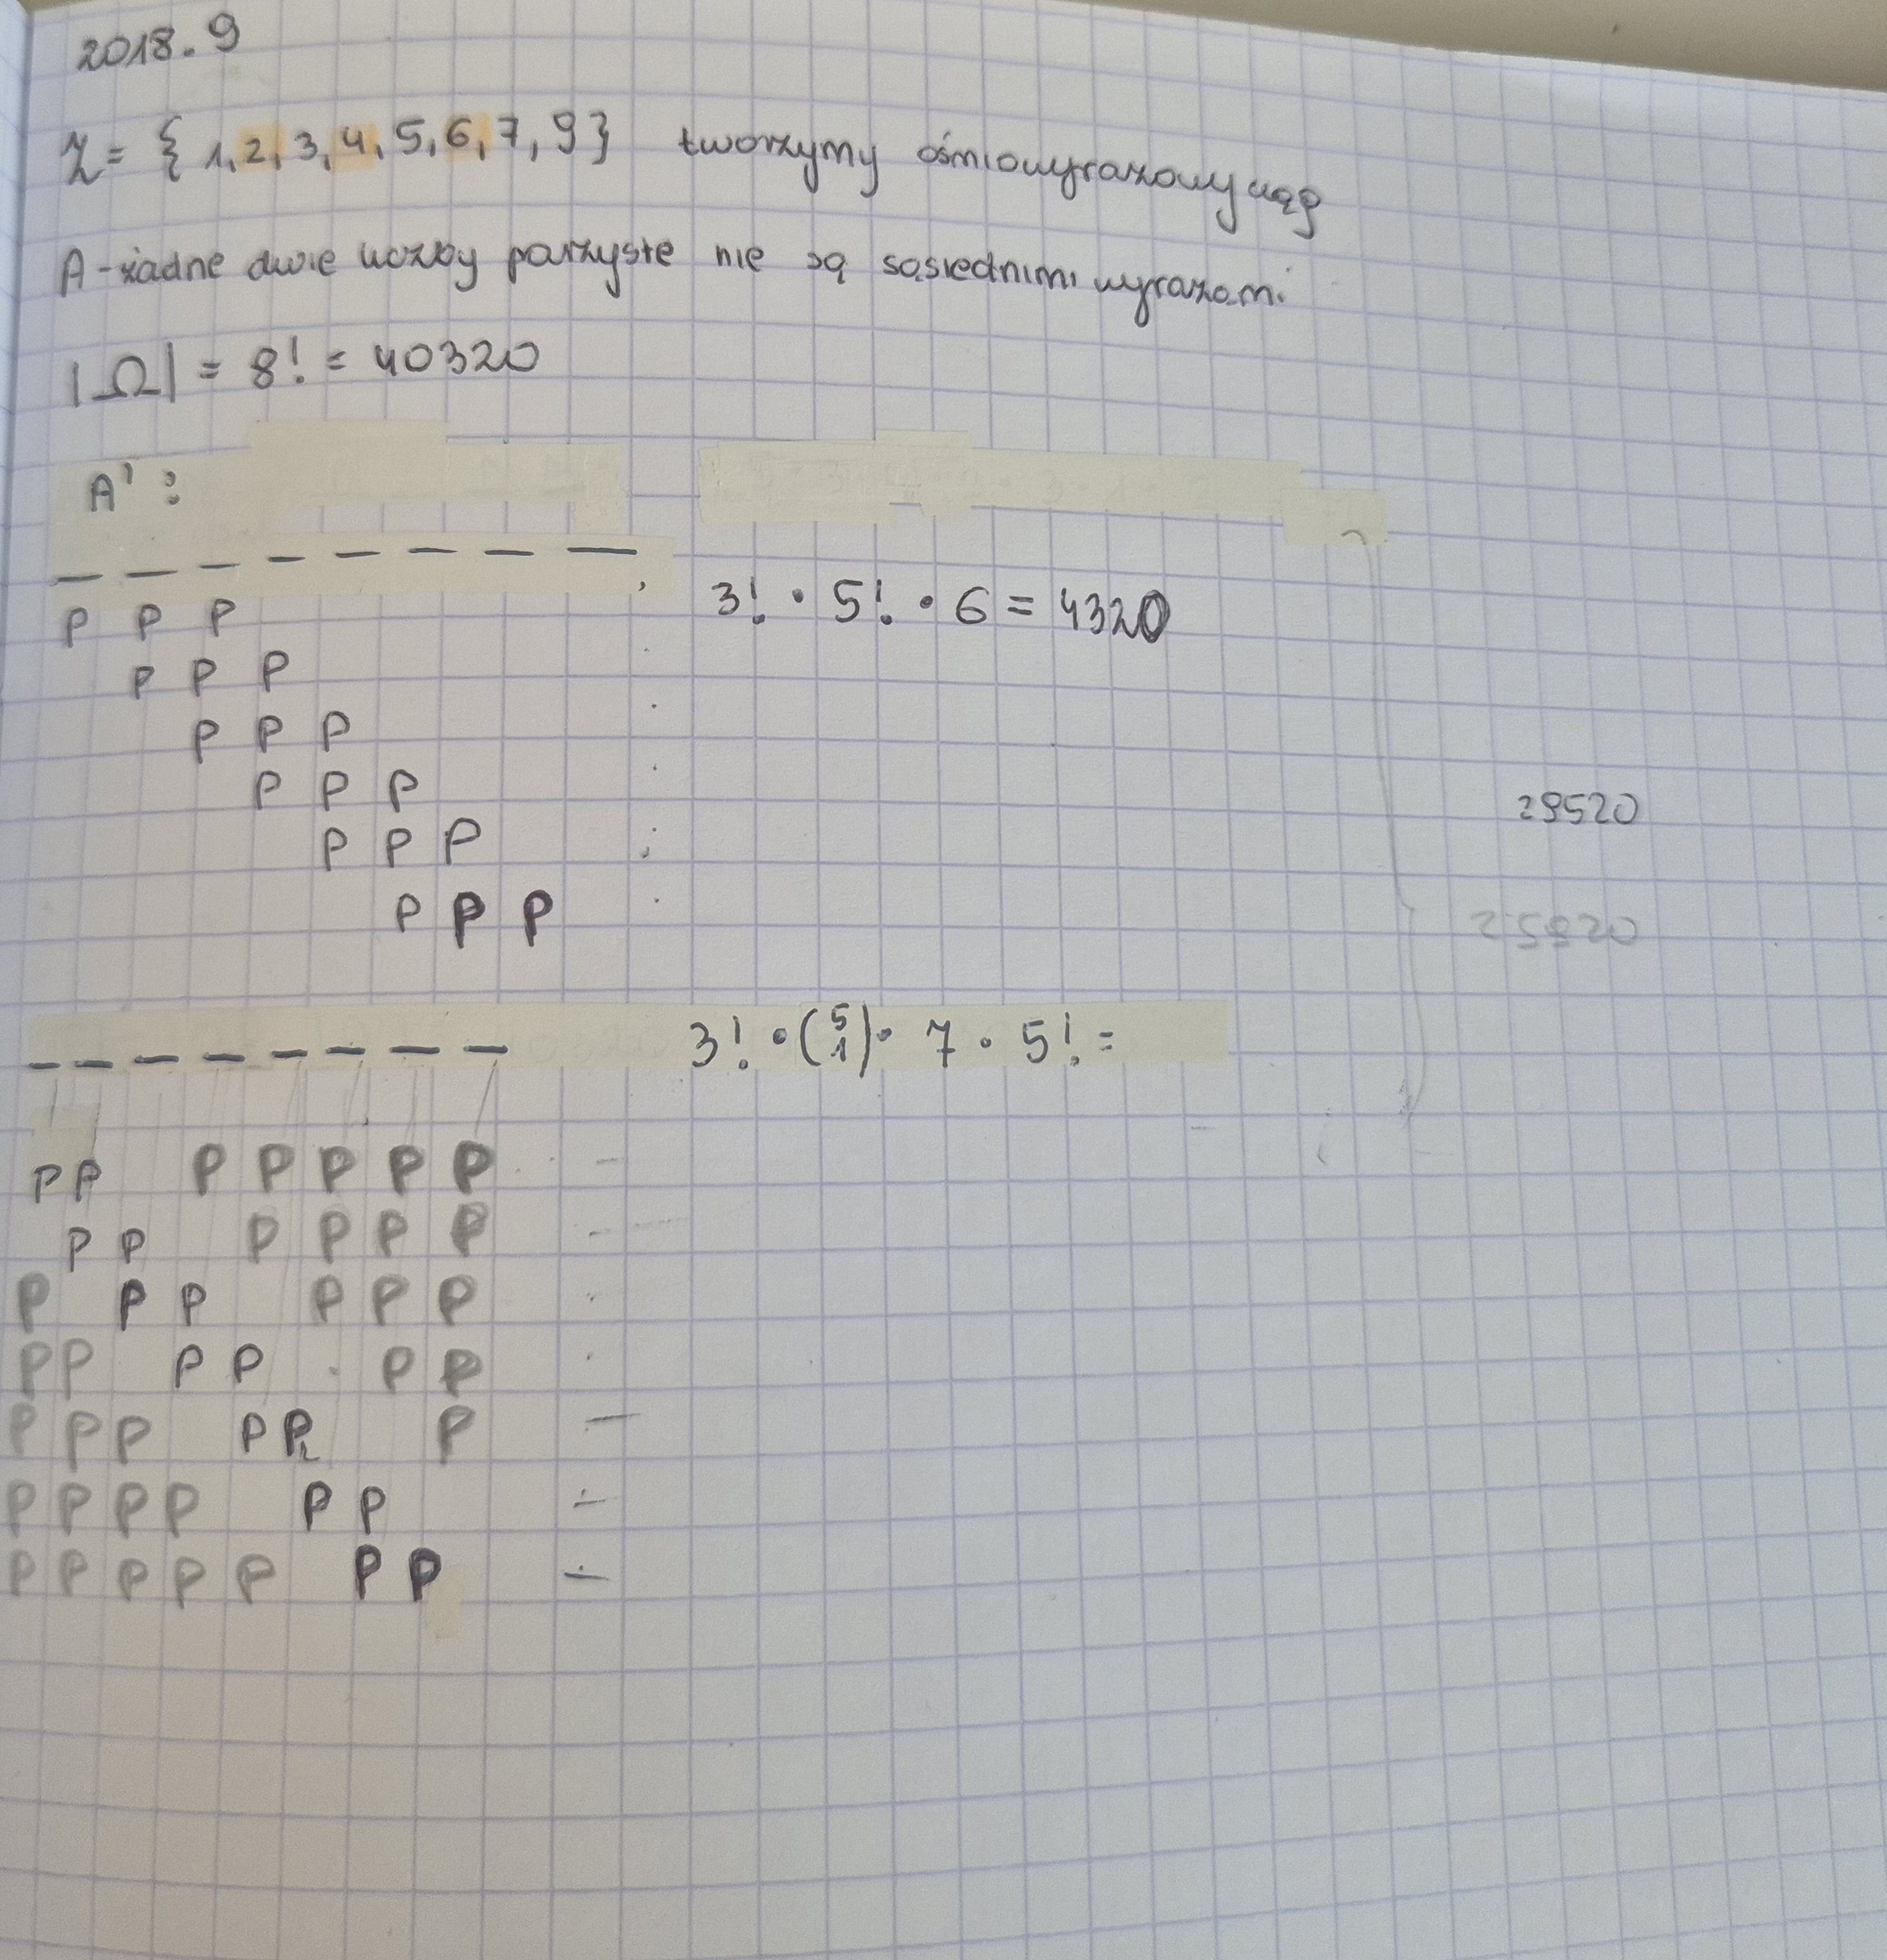 2018.9
Z = { 1, 2, 3, 4, 5, 6, 7, 9 } tworzymy ośmiowyrazowy ciąg
A - żadne dwie liczby parzyste nie są sąsiednimi wyrazami
|Ω| = 8! = 40320
A' :
_ _ _ _ _ _ _ _
P P P 3! · 5! · 6 = 4320
P P P
P P P
P P P
29520
P P P
P P P
25920
_ _ _ _ _ _ _ _ 3! · (5 1) · 7 · 5! =
P P P P P P P -
P P P P P P -
P P P P P P
P P P P P P
P P P P P P -
P P P P P P -
P P P P P P P -